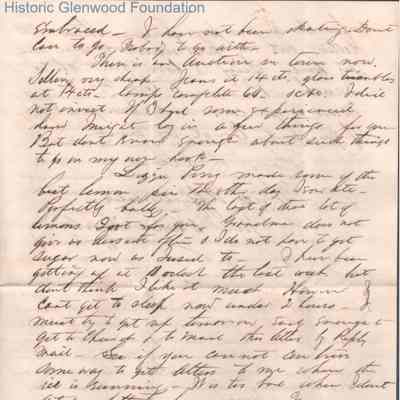 Historic Glenwood Foundation
Embraced — I have not been skating. Dont
care to go. Nobody to go with —
There is an Auction in town now.
Selling very cheap. Jeans at 14 cts, glass tumblers
at 4 cts — lamps complete 60.
not invest. If I had some experienced
hand I might buy in a few things for you
But dont know enough about such things
to go on my own hook —
Lizzie made some of the
best lemon pie the other day I ever ate —
Perfectly bully. The last of that lot of
lemons I got for you. Grandma does not
give us dessert often & I do not have to get
sugar now as I used to — I have been
getting up at this last week but
dont think I like it much. However I
cant get to sleep now under 2 hours — I
must try to get up tomorrow soon enough to
get to & to mail this letter by
mail — See if you can not
some way to get letters to me when the
ice is running — It is too bad when I dont